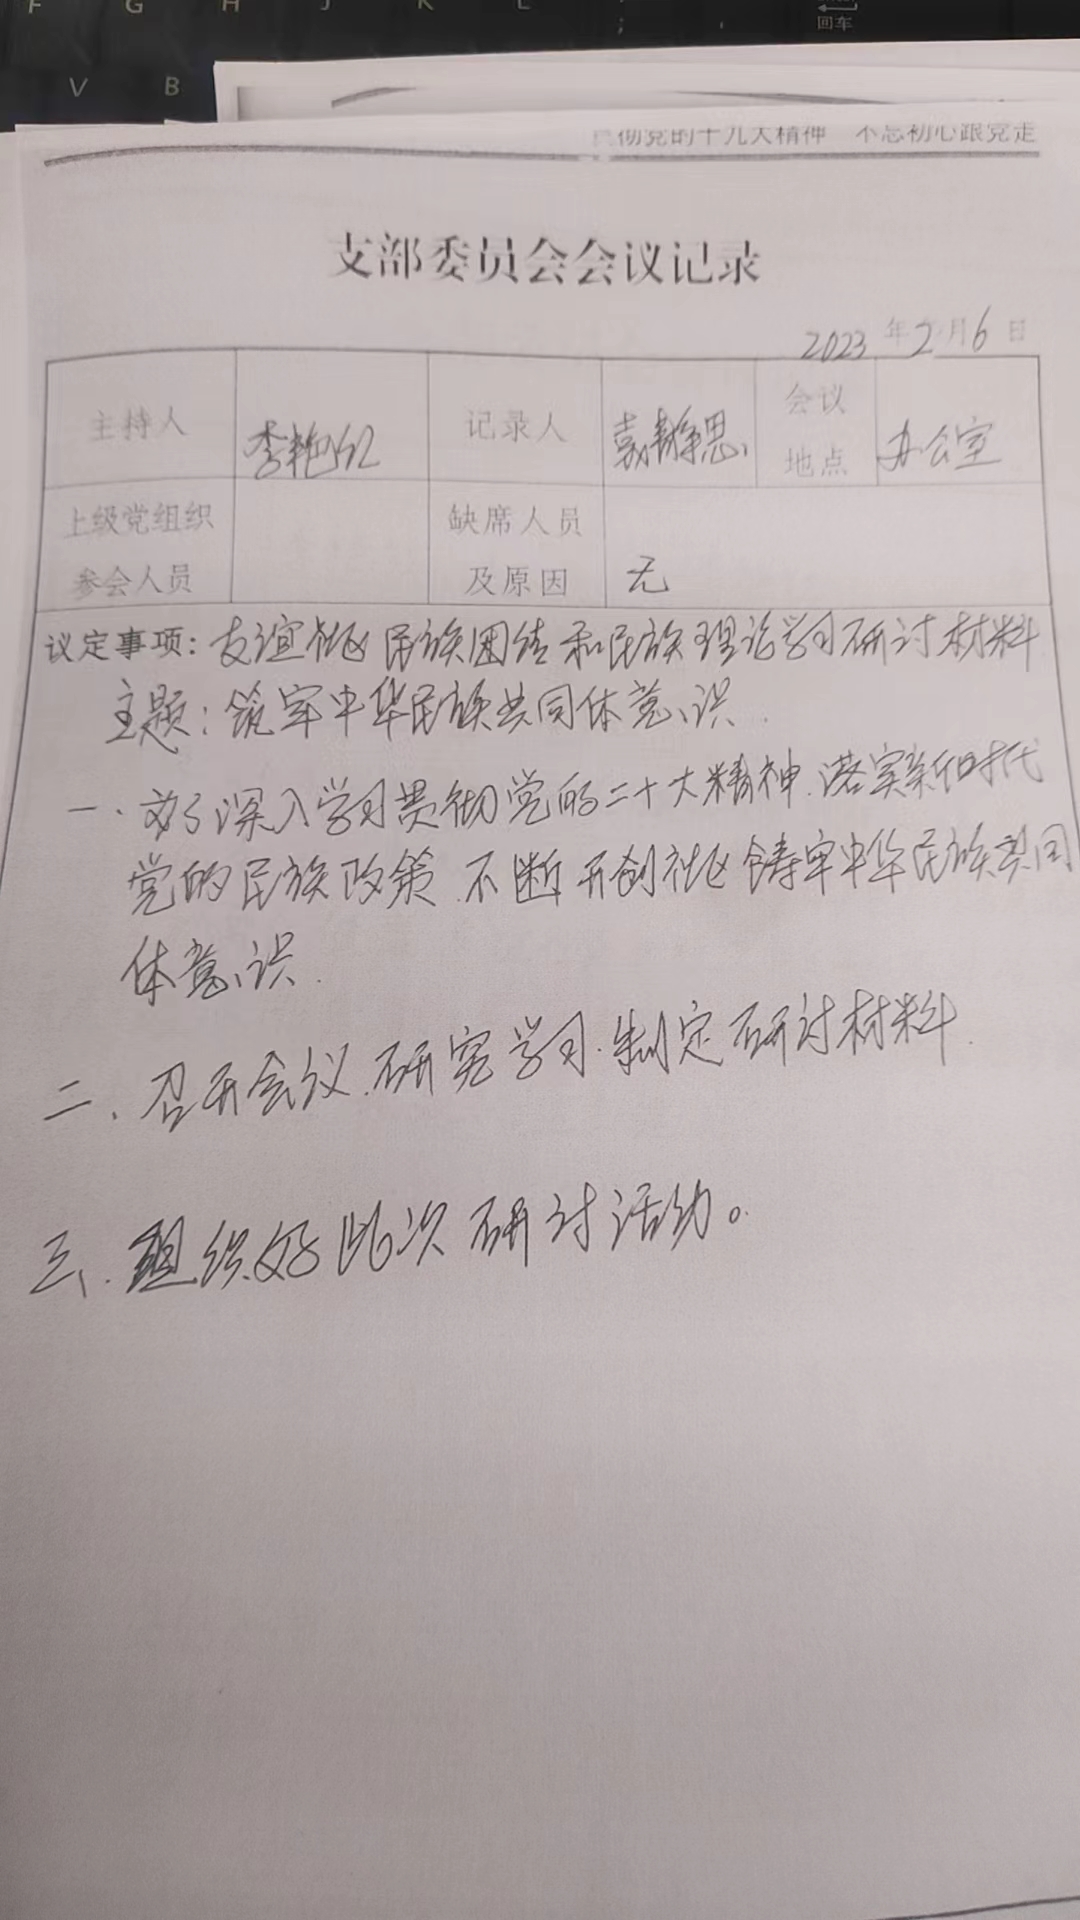 F G H J K L ;
回车
V B
贯彻党的十九大精神 不忘初心跟党走
支部委员会会议记录
2023年2月6日
主持人 李艳红 记录人 袁静思 会议地点 办公室
上级党组织参会人员 缺席人员及原因 无
议定事项：友谊社区民族团结和民族理论学习研讨材料
主题：筑牢中华民族共同体意识.
一、为了深入学习贯彻党的二十大精神、落实新时代
党的民族政策、不断开创社区铸牢中华民族共同
体意识.
二、召开会议、研究学习、制定研讨材料.
三、组织好此次研讨活动。